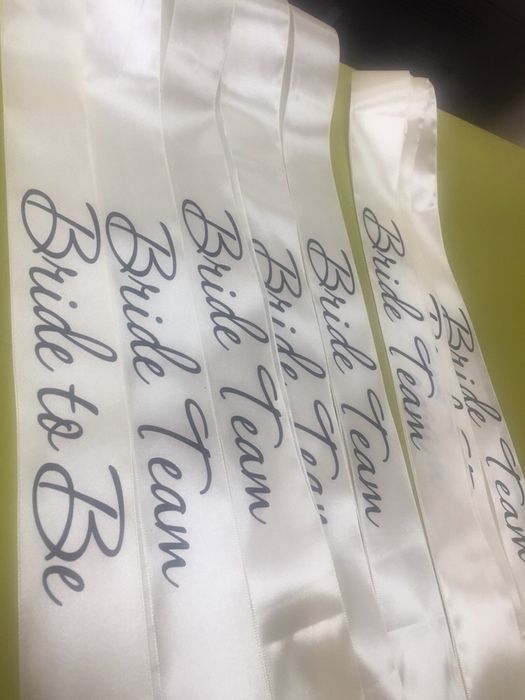 Bride to Be
Bride Team
Bride Team
Bride Team
Bride Team
Bride Team
Bride Team